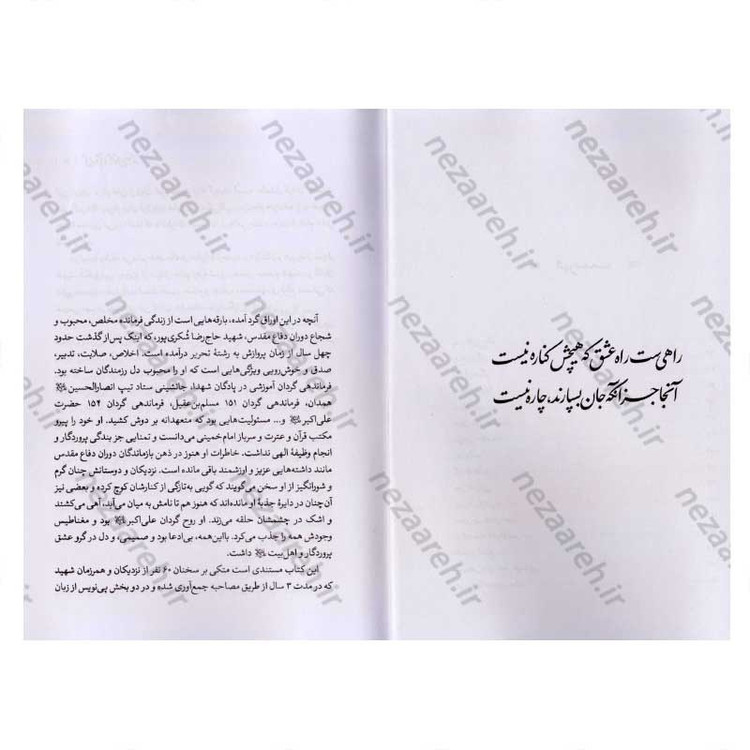 راهی‌ست راه عشق که هیچش کناره نیست
آنجا جز آنکه جان بسپارند، چاره نیست
آنچه در این اوراق گرد آمده، بارقه‌هایی است از زندگی فرمانده مخلص، محبوب و
شجاع دوران دفاع مقدس، شهید حاج‌رضا شُکری‌پور، که اینک پس از گذشت حدود
چهل سال از زمان پروازش به رشتهٔ تحریر درآمده است. اخلاص، صلابت، تدبیر،
صدق و خوش‌رویی ویژگی‌هایی است که او را محبوب دل رزمندگان ساخته بود.
فرماندهی گردان آموزشی در پادگان شهدا، جانشینی ستاد تیپ انصارالحسین ﷺ
همدان، فرماندهی گردان ۱۵۱ مسلم‌بن‌عقیل، فرماندهی گردان ۱۵۴ حضرت
علی‌اکبر و... مسئولیت‌هایی بود که متعهدانه بر دوش کشید. او خود را پیرو
مکتب قرآن و عترت و سرباز امام خمینی می‌دانست و تمنایی جز بندگی پروردگار و
انجام وظیفهٔ الهی نداشت. خاطرات او هنوز در ذهن بازماندگان دوران دفاع مقدس
مانند داشته‌هایی عزیز و ارزشمند باقی مانده است. نزدیکان و دوستانش چنان گرم
و شورانگیز از او سخن می‌گویند که گویی به‌تازگی از کنارشان کوچ کرده و بعضی نیز
آن‌چنان در دایرهٔ جذبهٔ او مانده‌اند که هنوز هم تا نامش به میان می‌آید، آهی می‌کشند
و اشک در چشمشان حلقه می‌زند. او روح گردان علی‌اکبر بود و مغناطیس
وجودش همه را جذب می‌کرد. بااین‌همه، بی‌ادعا بود و صمیمی، و دل در گرو عشق
پروردگار و اهل‌بیت داشت.
این کتاب مستندی است متکی بر سخنان ۶۰ نفر از نزدیکان و همرزمان شهید
که در مدت ۳ سال از طریق مصاحبه جمع‌آوری شده و در دو بخش پی‌نویس از زبان
nezaareh.ir
nezaareh.ir
nezaareh.ir
nezaareh.ir
nezaareh.ir
nezaareh.ir
nezaareh.ir
nezaareh.ir
nezaareh.ir
nezaareh.ir